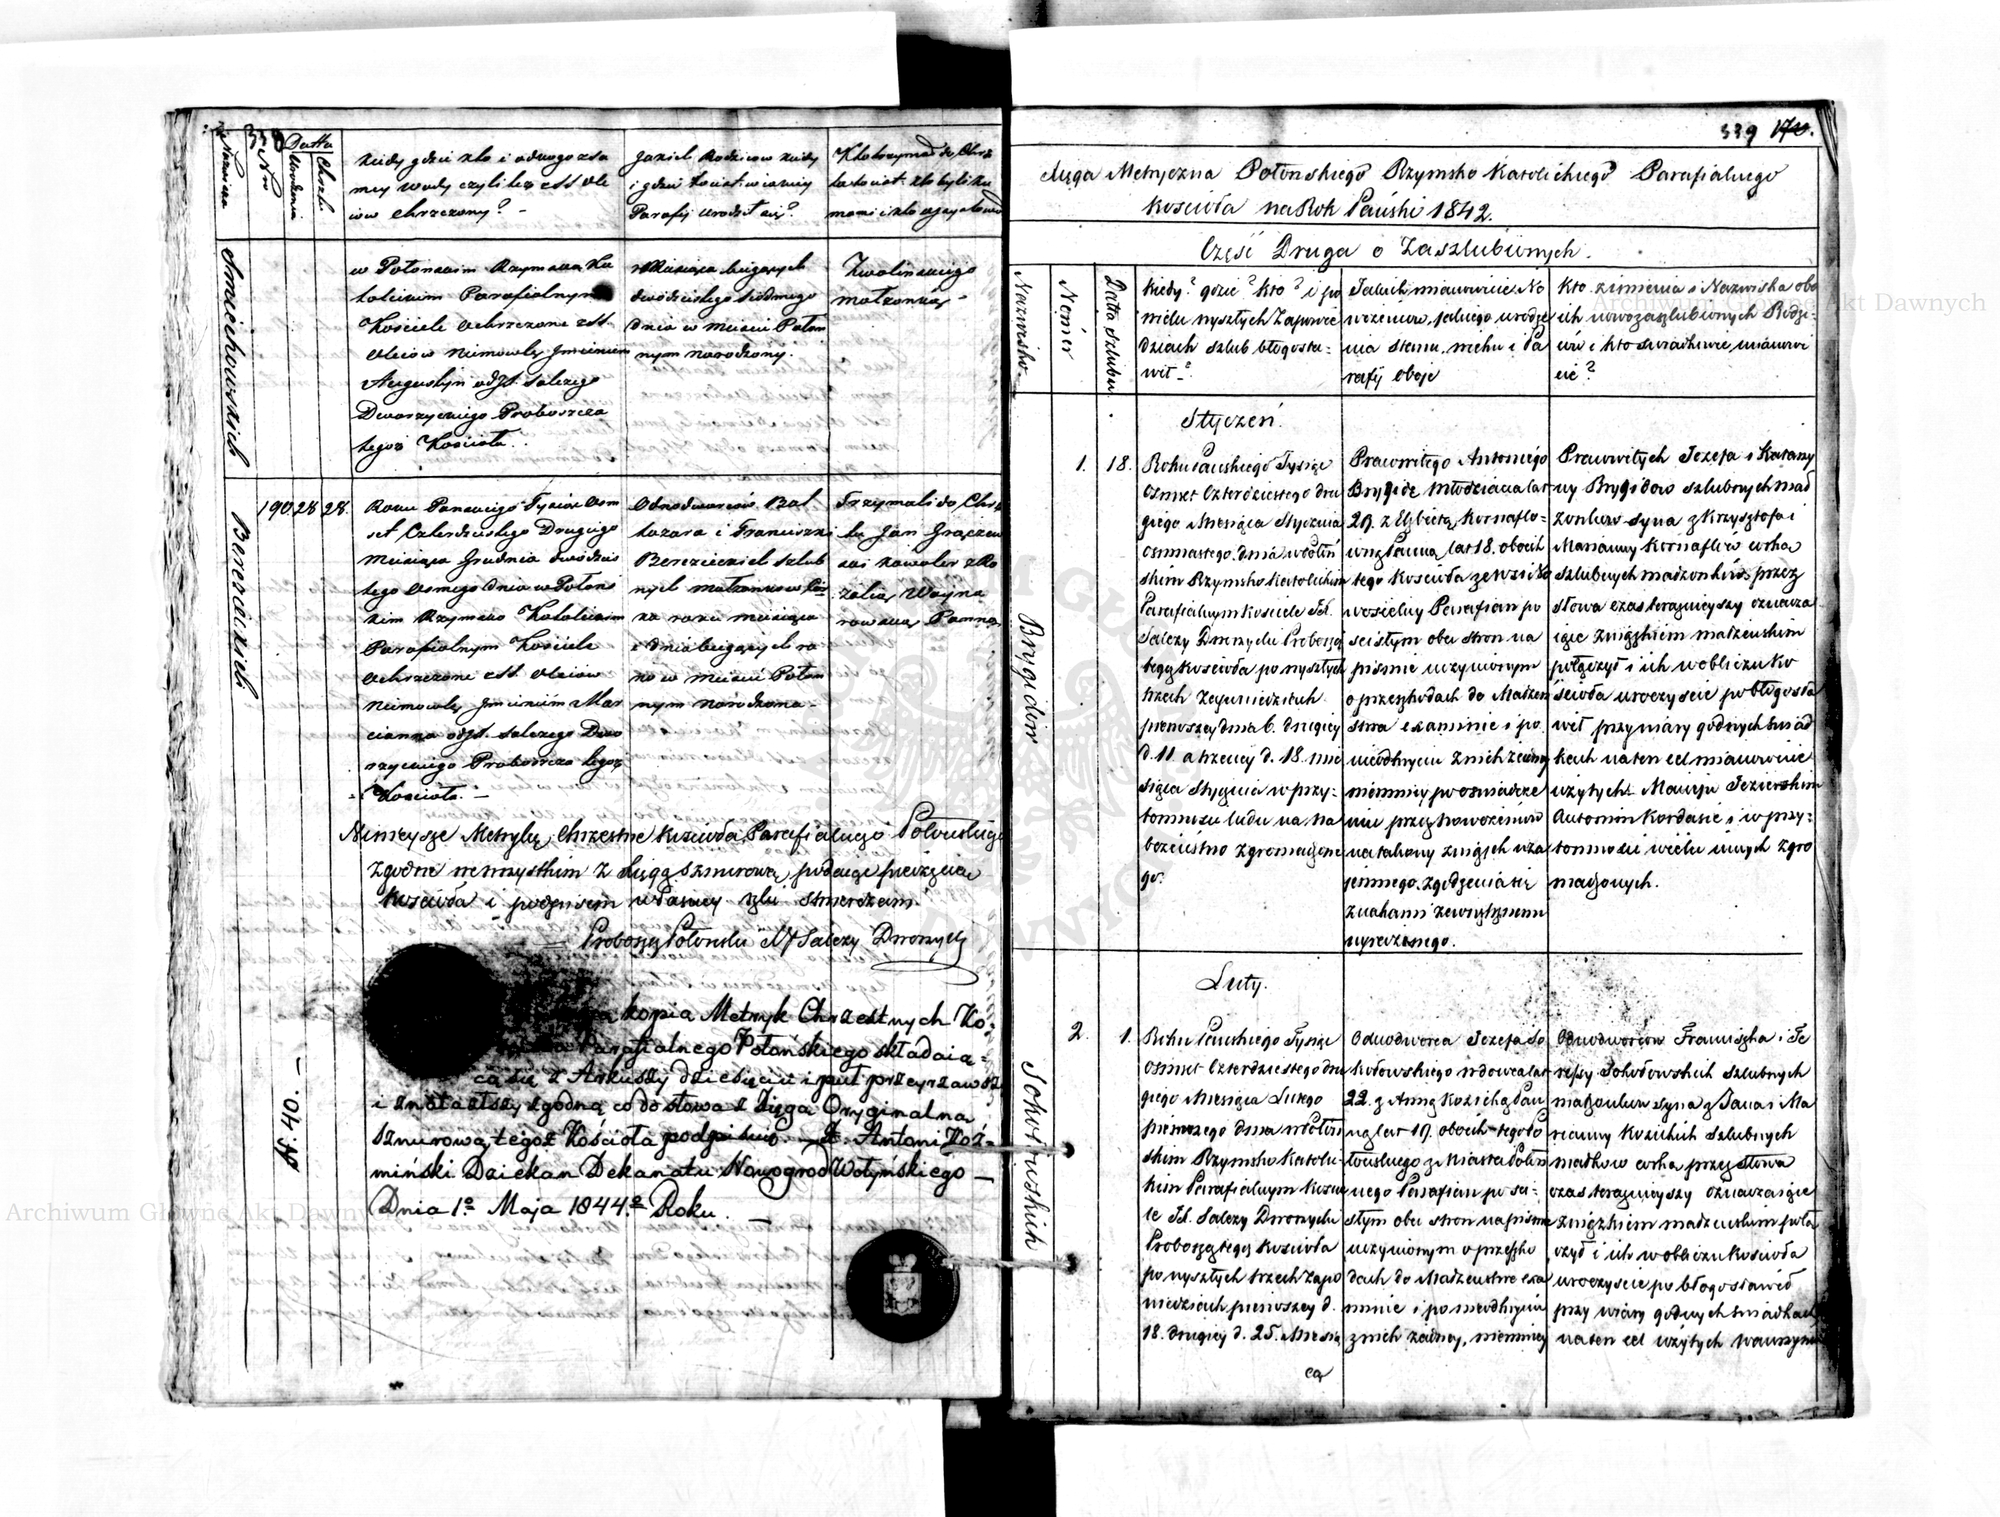 338
Nazwiska
Nro
Datta
Urodzenia
Chrztu
kiedy gdzie kto i
mey wody czyli też ezt Ole
iow chrzczony?
Jakich Rodzicow kiedy
i gdzie
Parafij urodził się?
Kto trzymał do Chrz
mami i kto
Smiechowskich
w Połonskim Rzymsko Ka
tolickim Parafialnym
Kościele Ochrzczone zJJ.
Oleiow Niemowlę Jmieniem
Augustyn odJX. Salezego
Dworzyckiego Proboszcza
tegoż Kościoła.
i Miesiąca bieżących
dwódziestego siódmego
dnia w mieście Połon
nym narodzony.
Zwolinskiego
małżonką
Berezieckich
190. 28 28.
Roku Panskiego Tysiac Osm
set Czterdziestego Drugiego
Miesiąca Grudnia dwódzies
tego Osmego dnia w Połons
kim Rzymsko Katolickim
Parafialnym Kościele
Ochrzczone zJJ. Oleiow
Niemowlę Jmieniem Mar
cianna odJX. Salezego Dwo
rzyckiego Proboszcza tegoż
Kościoła.
Odnodworców Bal
tazara i Franciszki
Berezieckich szlub
nych małżonkow Cór
ka roku miesiąca
i dnia bieżących ra
no w mieście Połon
nym narodzona
Trzymali do Chrz
tu Jan Graczew
ski kawaler z Ro
zalią Woyna
rowską Panną
Nimieysze Metryki Chrzestne Kościoła Parafialnego Połonskiego
Zgodne we wszystkim z Xięgą Sznurową podaiąc pieczęcią
Kościoła i podpisem własney ręki stwierdzam.
Proboszcz Połonski X Salezy Dworzycki
kopia Metryk Chrzestnych Ko-
Parafialnego Połońskiego składaią-
ca się z Arkuszy dziesięciu i puł przeyrzawszy
i znalazłszy zgodną co do słowa z Xięgą Oryginalną
Sznurową tegoż Kościoła podpisuię. X. Antoni Koź-
miński Dziekan Dekanatu Nowogrod Wołyńskiego
Dnia 1o Maja 1844o Roku.
40.
339 170.
Xięga Metryczna Połonskiego Rzymsko Katolickiego Parafialnego
Kościoła na Rok Pański 1842.
Część Druga o Zaszlubionych.
Nazwisko.
Numer
Datta Szlubu.
Kiedy? gdzie? kto? i po
wielu wyszłych Zapowie
dziach szlub błogosła-
wił?
Jakich mianowicie No
wożencow, jakiego urodze
nia stanu, wieku i Pa
rafij oboje
Kto z imienia i Nazwiska obo
ich nowozaszlubionych Rodzi-
ców i kto swiadkowie mianowi
cie?
Styczeń.
Brygidow
1. 18.
Roku Panskiego Tysiąc
Osmset Czterdziestego dru
giego Miesiąca Stycznia
osmnastego dnia w Połoń
skim Rzymsko Katolickim
Parafialnym Kościele JX.
Salezy Dworzycki Proboszcz
tegoż Kościoła po wyszłych
trzech Zapowiedziach
pierwszey dnia 6. drugiey
d. 11. a trzeciey d. 18. mie
siąca Stycznia w przy-
tomnosci ludu na na
bożeństwo zgromadzone
go.
Pracowitego Antoniego
Brygidę Młodziana lat
20. z Elżbietą Kornaflo-
wną Panną lat 18. oboich
tego Kościoła ze wsi
Parafian po
scisłym obu stron na
pismie uczynionym
o przeszkodach do Małżeń
stwa examinie i po
nieodkryciu z nich żadney
niemniey po oswiadcze
niu przez Nowożencow
na takowy związek wza
jemnego zgodzenia się
znakami zewnętrznemi
wyrażonego.
Pracowitych Jozefa i Katarzy
ny Brygidow szlubnych mał
żonkow syna z Krzysztofa i
Marianny Kornaflów corka
szlubnych małżonków, przez
słowa czas terazniejszy oznacza
iące związkiem małżenskim
połączył i ich w obliczu Ko
ścioła uroczyscie pobłogosła
wił przy wiary godnych Swiad
kach na ten cel mianowicie
użytych Macieju Jezierskim
Antonim Kordasie i w przy-
tomnosci wielu innych zgro
madzonych.
Luty.
Sokołowskich
2. 1.
Roku Panskiego Tysiąc
Osmset Czterdziestego dru
giego Miesiąca Lutego
pierwszego dnia w Połoń
skim Rzymsko Katolic
kim Parafialnym Koście
le JX. Salezy Dworzycki
Proboszcz tegoż Kościoła
po wyszłych trzech Zapo
wiedziach pierwszey d.
18. drugiey d. 25. Miesią
ca
Odnodworca Jozefa So
kołowskiego wdowca lat
22. z Anną Kozicką Pan
ną lat 19. oboich tego Po
łonskiego z Miasta Połon
nego Parafian po sci-
słym obu stron na pismie
uczynionym o przeszko
dach do Małżenstwa exa
minie i po nieodkryciu
z nich żadney, niemniey
Odnodworcow Franciszka i Te
ressy Sokołowskich szlubnych
małżonkow syna z Jana i Ma
rianny Kozickich szlubnych
małżkow corka przez słowa
czas terazniejszy oznaczaiące
związkiem małżenskim połą
czył i ich w obliczu Kościoła
uroczyscie pobłogosławił
przy wiary godnych Swiadkach
na ten cel użytych Wawrzyn
Archiwum Główne Akt Dawnych
Archiwum Główne Akt Dawnych